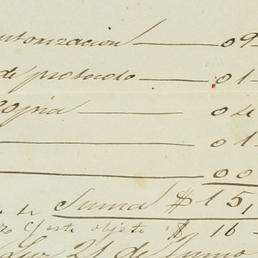 utorizacion — 09
de protocolo — 01
opia — 04
— 01
— 00
Suma $ 15,
este objeto $ 16
21 de Junio